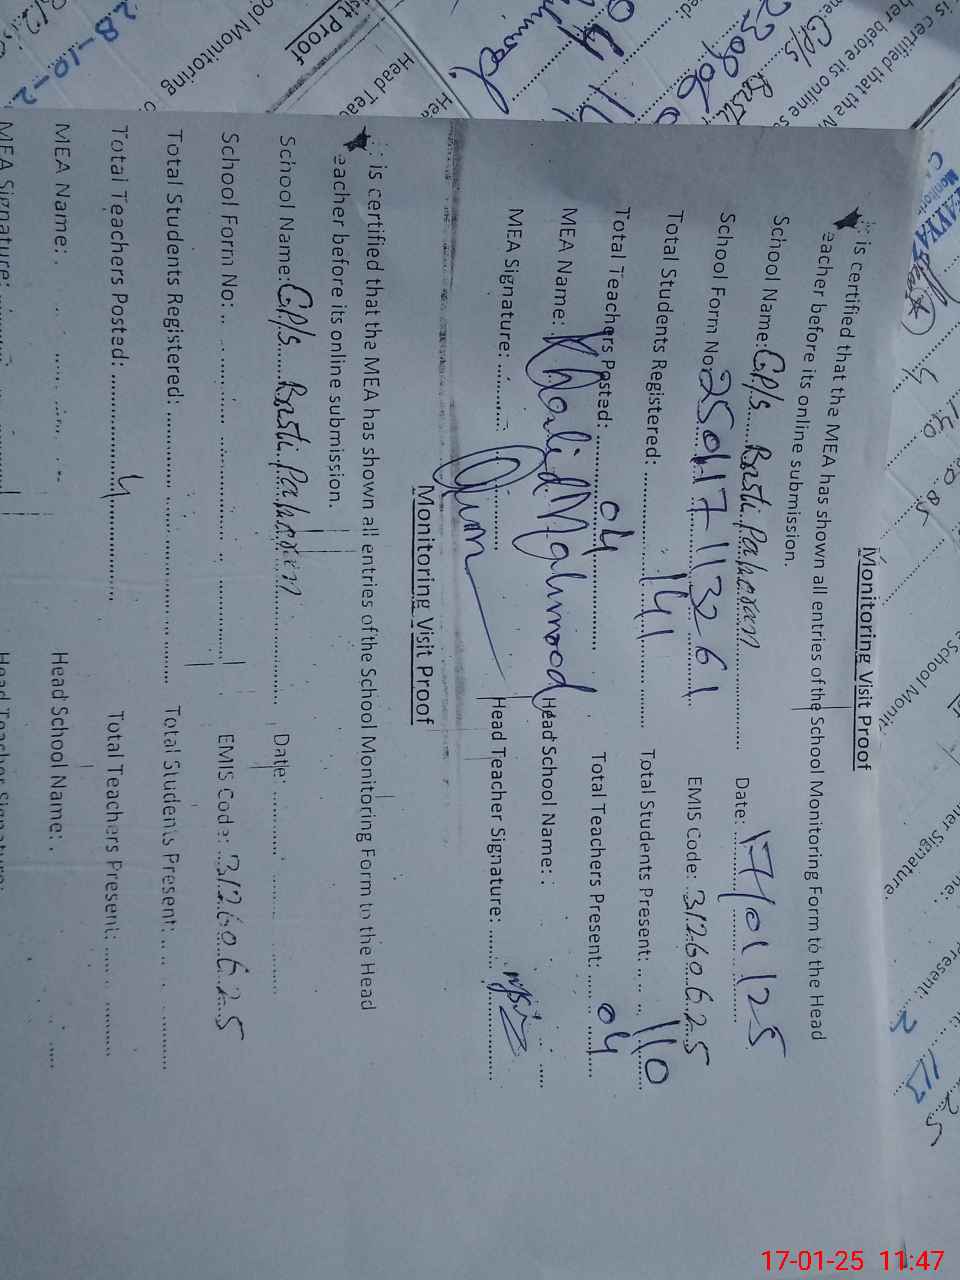 Monitoring Visit Proof
is certified that the MEA has shown all entries of the School Monitoring Form to the Head
eacher before its online submission.
School Name: G.P/S Basti Pahoran Date: 17/01/25
School Form No 250117113261 EMIS Code: 31260625
Total Students Registered: 141 Total Students Present: 110
Total Teachers Posted: 04 Total Teachers Present: 04
MEA Name: Khalid Mahmood Head School Name:
MEA Signature: Head Teacher Signature:
Monitoring Visit Proof
is certified that the MEA has shown all entries of the School Monitoring Form to the Head
eacher before its online submission.
School Name: G.P/S Basti Pahoran Date:
School Form No: EMIS Code: 31260625
Total Students Registered: Total Students Present:
Total Teachers Posted: 4 Total Teachers Present:
MEA Name: Head School Name:
MEA Signature: Head Teacher Signature:
17-01-25 11:47